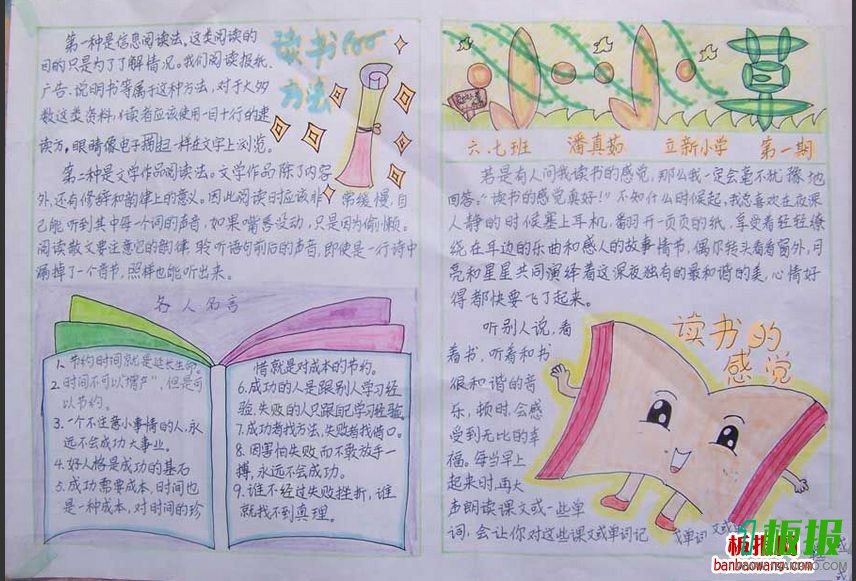 第一种是信息阅读法。这类阅读的
目的只是为了了解情况。我们阅读报纸、
广告、说明书等属于这种方法,对于大多
数这类资料,读者应该使用一目十行的速
读方,眼睛像电子扫描一样在文字上浏览。
第二种是文学作品阅读法。文学作品除了内容
外,还有修辞和韵律上的意义。因此阅读时应该非常缓慢,自
己能听到其中每一个词的声音,如果嘴唇没动,只是因为偷懒。
阅读散文要注意它的韵律,聆听语句前后的声音,即使是一行诗中
漏掉了一个音节,照样也能听出来。
读书的
方法
名人名言
1.节约时间就是延长生命。
2.时间不可以增产,但是可
以节约。
3.一个不注意小事情的人,永
远不会成功大事业。
4.好人格是成功的基石
5.成功需要成本,时间也
是一种成本,对时间的珍
惜就是对成本的节约。
6.成功的人是跟别人学习经
验,失败的人只跟自己学习经验
7.成功者找方法,失败者找借口。
8.因害怕失败而不敢放手一
搏,永远不会成功。
9.谁不经过失败挫折,谁
就找不到真理。
六.七班 潘真茹 立新小学 第一期
若是有人问我读书的感觉,那么我一定会毫不犹豫地
回答:"读书的感觉真好!"不知什么时候起,我总喜欢在夜深
人静的时候塞上耳机,翻开一页页的纸,享受着轻轻缭
绕在耳边的乐曲和感人的故事情节,偶尔转头看看窗外,月
亮和星星共同演绎着这深夜独有的最和谐的美,心情好
得都快要飞了起来。
读书的
感觉
听别人说,看
着书,听着和书
很和谐的音
乐,顿时会感
受到无比的幸
福。每当早上
起来时,再大
声朗读课文或一些单
词,会让你对这些课文或单词记
板报
banbaowang.com